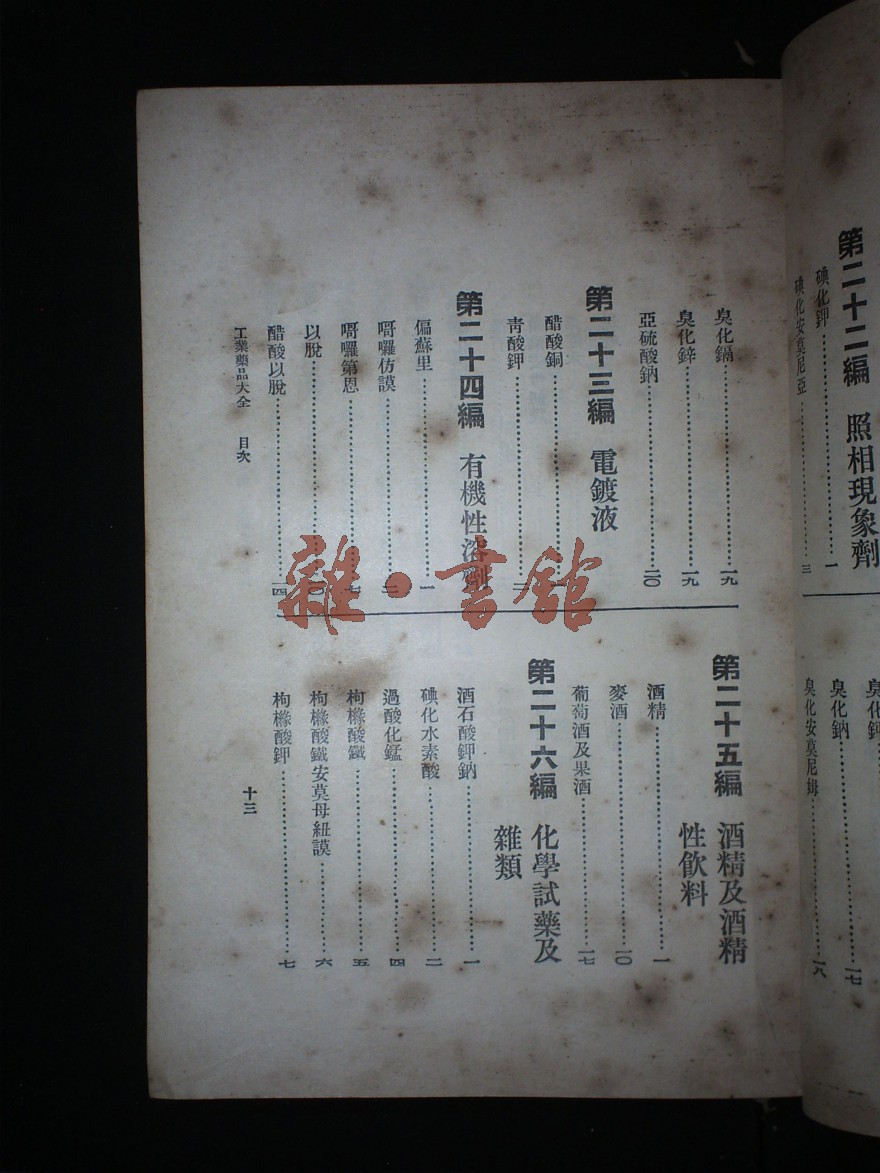 第二十二編　照相現象劑
碘化鉀……一
碘化安莫尼亞……三
臭化鈉……一七
臭化安莫尼姆……一八
臭化鎘……一九
臭化鋅……一九
亞硫酸鈉……二〇
第二十三編　電鍍液
醋酸銅
靑酸鉀
第二十四編　有機性溶劑
偏蘇里……一
哥囉仿謨
哥囉第恩
以脫
醋酸以脫……一四
第二十五編　酒精及酒精
性飲料
酒精……一
麥酒……一〇
葡萄酒及果酒……一七
第二十六編　化學試藥及
雜類
酒石酸鉀鈉……一
碘化水素酸……二
過酸化錳……四
枸櫞酸鐵……五
枸櫞酸鐵安莫母紐謨……六
枸櫞酸鉀……七
工業藥品大全　目次
十三
雜·書館